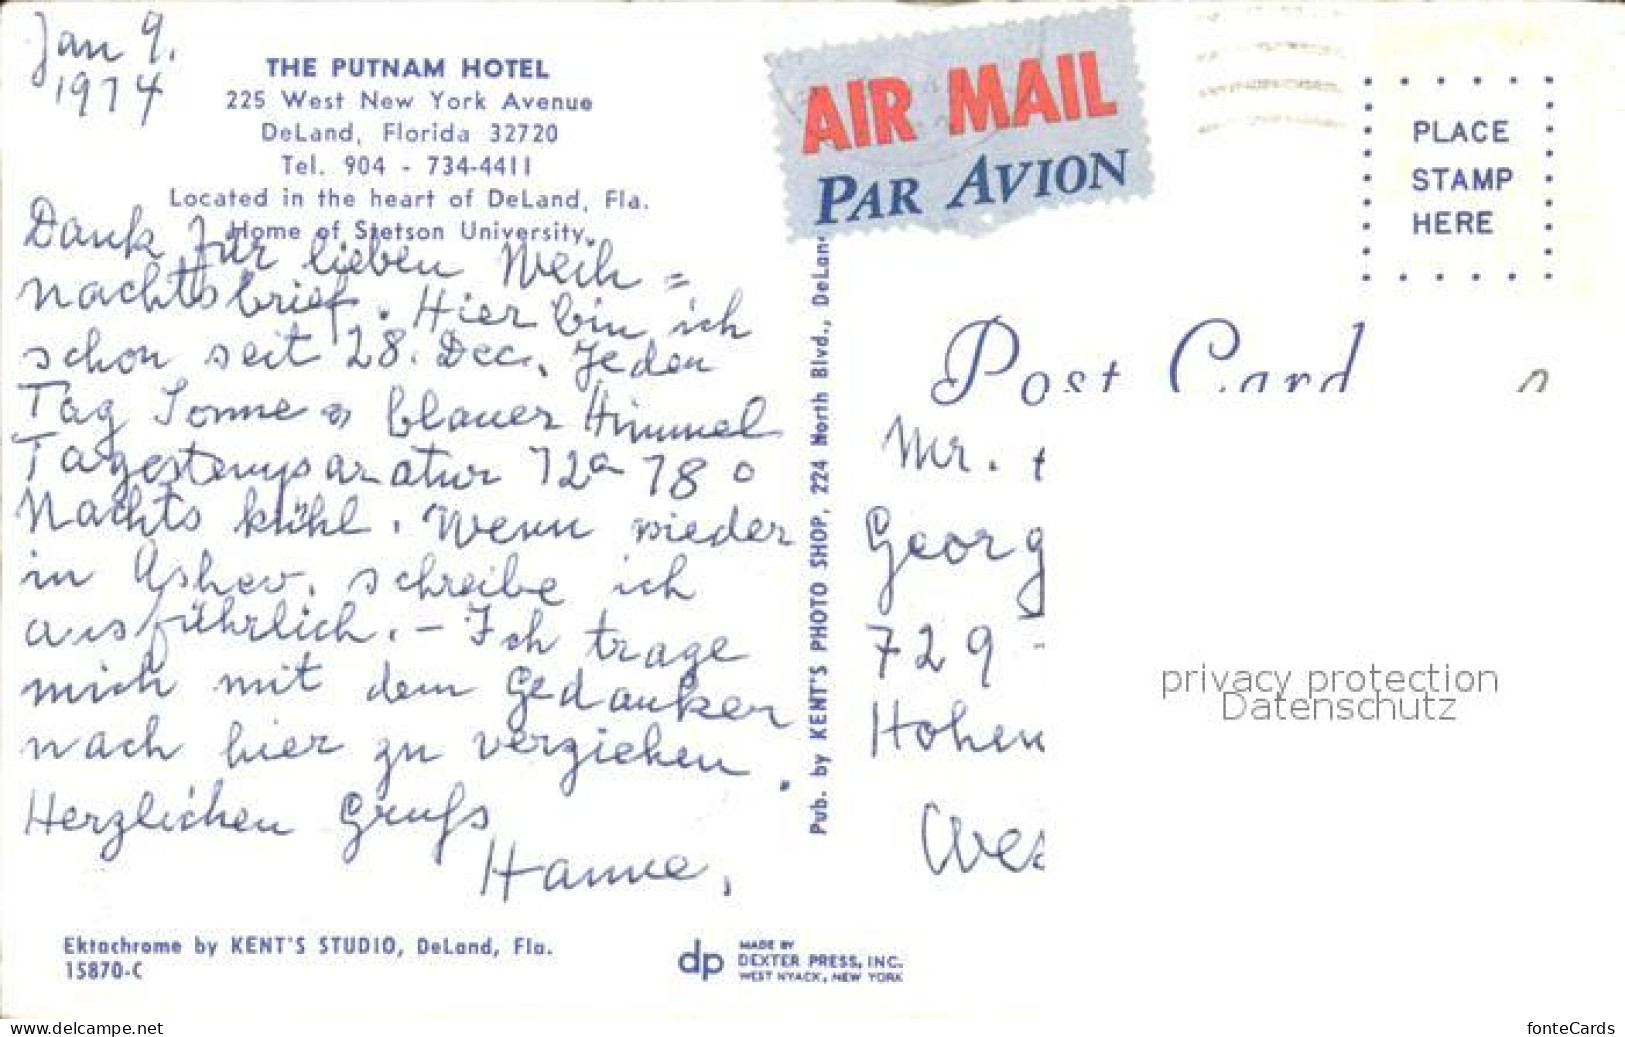 Jan 9.
1974
THE PUTNAM HOTEL
225 West New York Avenue
DeLand, Florida 32720
Tel. 904 - 734-4411
Located in the heart of DeLand, Fla.
Home of Stetson University.
Dank für lieben Weih=
nachtsbrief. Hier bin ich
schon seit 28. Dec. Jeden
Tag Sonne & blauer Himmel
Tagestemparatur 72 a 78 °
Nachts kühl. Wenn wieder
in Ashev. schreibe ich
ausführlich. - Ich trage
mich mit dem Gedanken
nach hier zu verziehen.
Herzlichen Gruß
Hanne.
Ektachrome by KENT'S STUDIO, DeLand, Fla.
15870-C
dp
MADE BY
DEXTER PRESS, INC.
WEST NYACK, NEW YORK
Pub. by KENT'S PHOTO SHOP, 224 North Blvd., DeLan
AIR MAIL
PAR AVION
PLACE
STAMP
HERE
Post Card
Mr.
Georg
729 -
Hohen
Wes
privacy protection
Datenschutz
www.delcampe.net
fonteCards